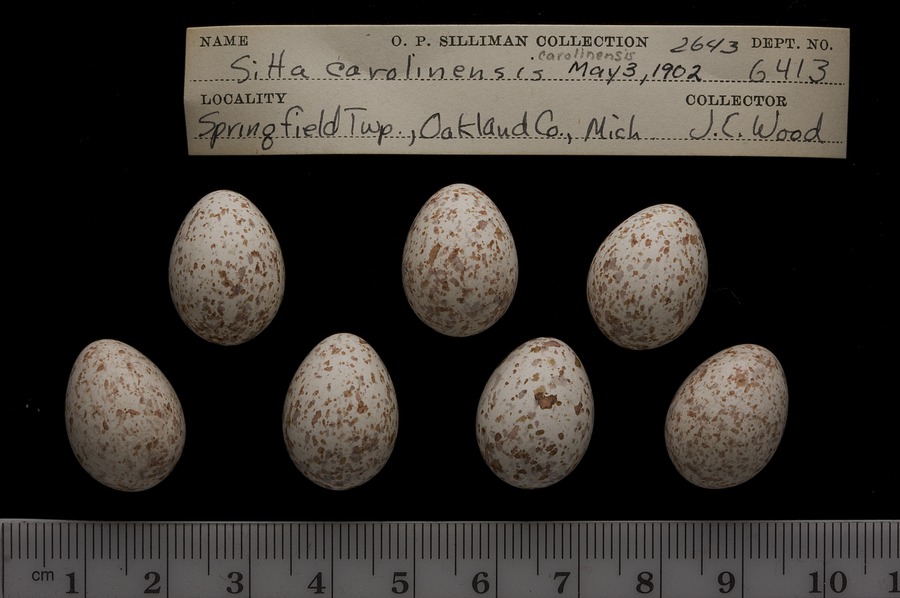 NAME O. P. SILLIMAN COLLECTION 2643 DEPT. NO.
carolinensis
Sitta carolinensis May 3, 1902 6413
LOCALITY COLLECTOR
Springfield Twp., Oakland Co., Mich J.C. Wood
cm 1 2 3 4 5 6 7 8 9 10 1